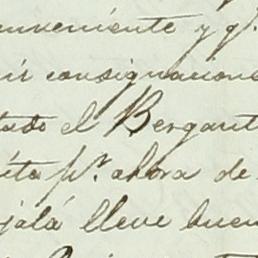 nveniente y q.
ir consignacione
tado el Bergant
ita p.r ahora de
jalá lleve buen